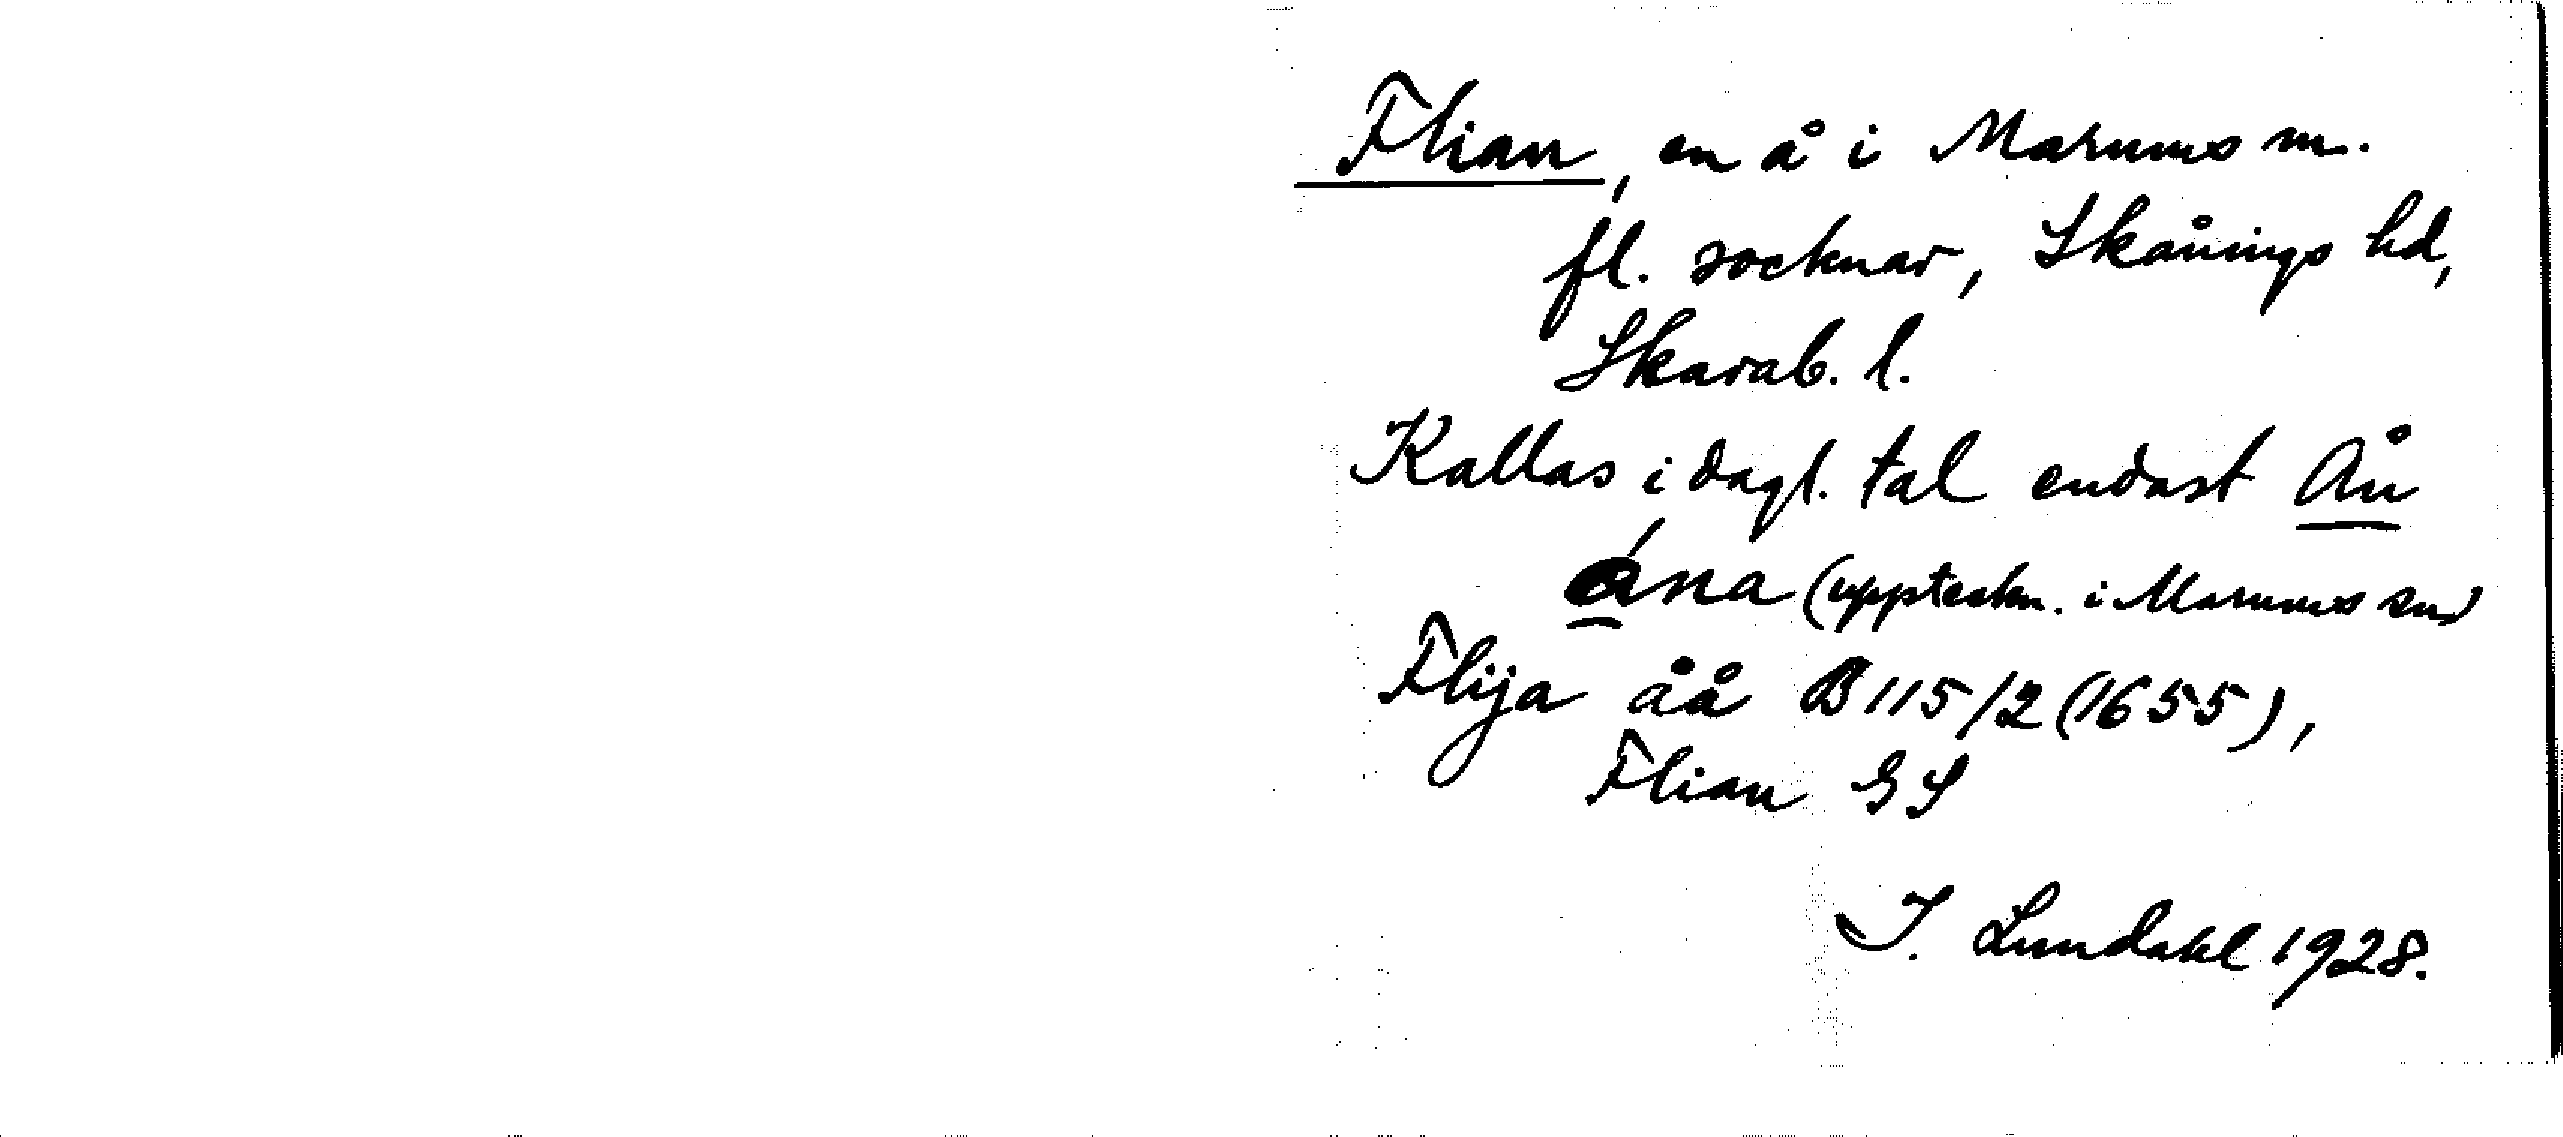 Flian, en å i Marums m.
fl. socknar, Skånings hd,
Skarab. l.
Kallas i dagl. tal endast Ån
ána (uppteckn. i Marums sn)
Flija åå B 115/2 (1655),
Flian GS
I. Lundahl 1928.